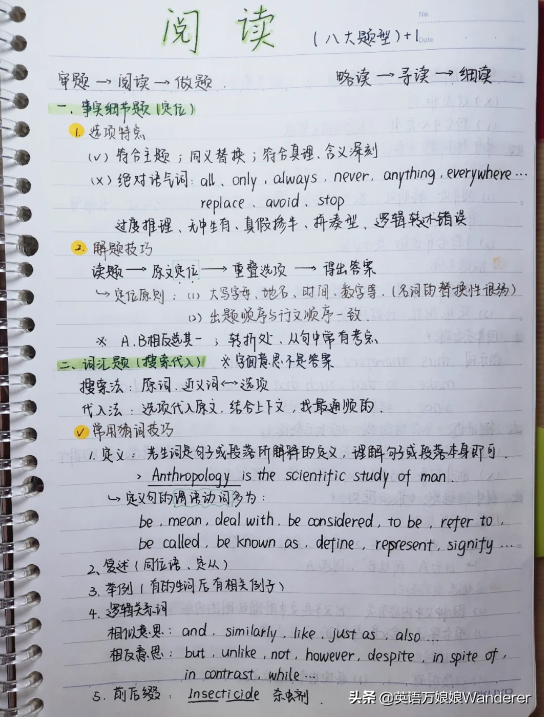 阅读 (八大题型)+1
No
Date
审题→阅读→做题. 略读→寻读→细读
一.事实细节题(定位)
1.选项特点
(√)符合主题;同义替换;符合真理、含义深刻
(×)绝对语气词:all、only,always,never,anything,everywhere…
replace、avoid、stop
过度推理、无中生有、真假掺半、拼凑型、逻辑转述错误
2.解题技巧
读题→原文定位→重叠选项→得出答案
↳定位原则:(1)大写字母、地名、时间、数字等.(名词的替换性很弱)
(2)出题顺序与行文顺序一致
※ A.B相反选其一;转折处、从句中常有考点
二.词汇题(搜索代入) ※字面意思不是答案
搜索法:原词、近义词↔选项
代入法:选项代入原文,结合上下文,找最通顺的.
√常用猜词技巧
1.定义:考生词是句子或段落所解释的定义,理解句子或段落本身即可.
> Anthropology is the scientific study of man.
↳定义句的谓语动词多为:
be,mean,deal with,be considered,to be,refer to,
be called,be known as,define,represent,signify…
2.复述(同位语、定从)
3.举例(有的生词后有相关例子)
4.逻辑关系词
相似意思:and,similarly,like,just as,also…
相反意思:but,unlike,not,however,despite,in spite of,
in contrast,while…
5.前后缀:Insecticide 杀虫剂
头条 @英语万娘娘Wanderer